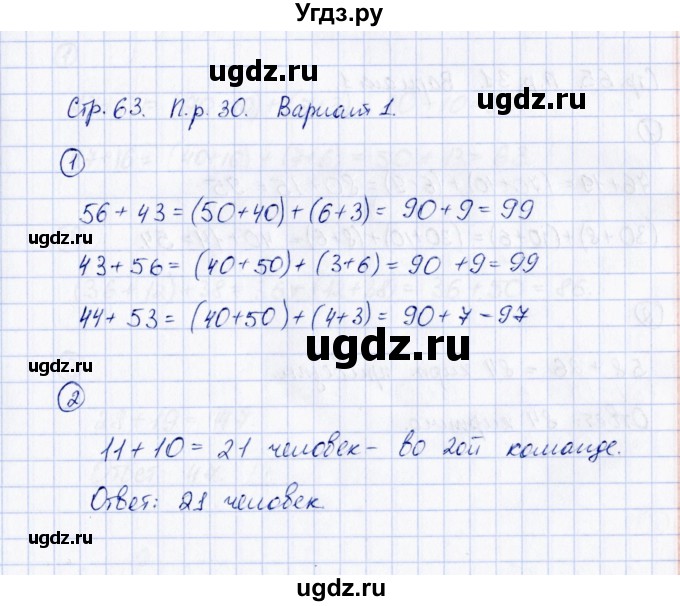 Угдз.ру
ugdz.ru
Стр. 63. П.р. 30. Вариант 1.
1
56 + 43 = (50+40) + (6+3) = 90 + 9 = 99
ugdz.ru
43 + 56 = (40+50) + (3+6) = 90 + 9 = 99
44 + 53 = (40+50) + (4+3) = 90 + 7 - 97
ugdz.ru
ugdz.ru
2
11 + 10 = 21 человек - во 2ой команде.
Ответ: 21 человек.
ugdz.ru
ugdz.ru